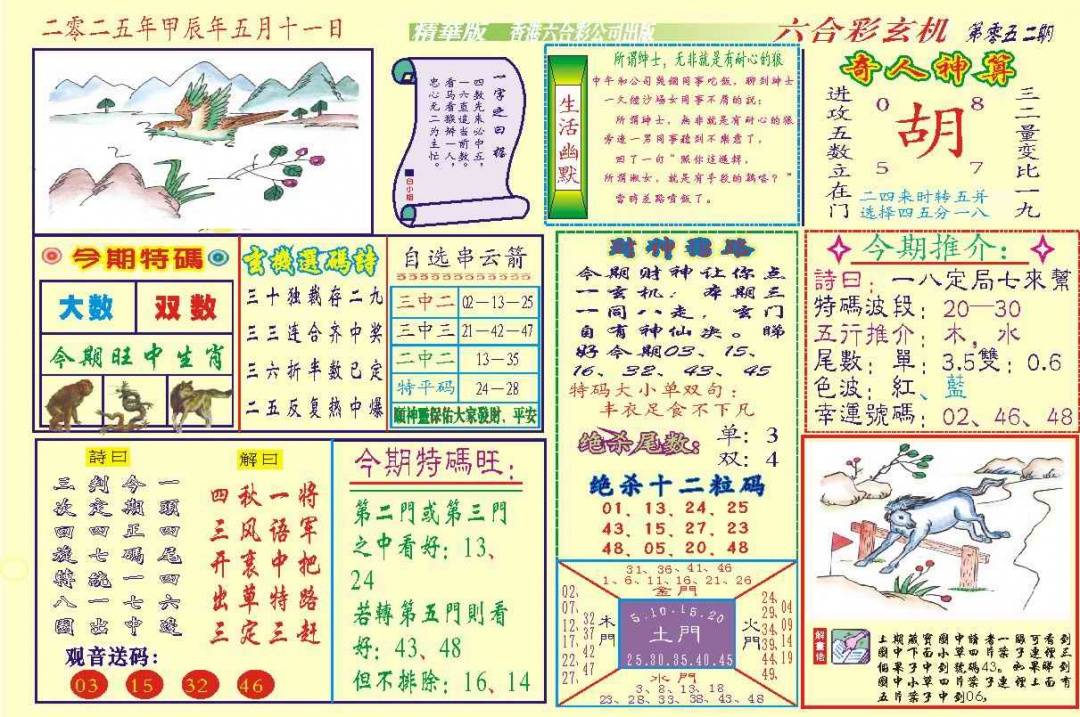 二零二五年甲辰年五月十一日
精華版 香港六合彩公司出版
六合彩玄机 第零五二期
一字之曰:猪
四数先来必中五,
一六直追当前数。
看马看猴辨一人,
忠心无二为主忙。
白小姐
生活幽默
所谓绅士,无非就是有耐心的狼
中午和公司與個同事吃飯,聊到紳士
一大個沙場女同事不屑的說:
所謂紳士,無非就是有耐心的狼
旁邊一男同事聽到不樂意了,
回了一句"照你這邏輯,
所謂淑女,就是有手段的鷄嘍?"
當時差點噴飯了。
奇人神算
进攻五数立在门
0 8
胡
5 7
三二量变比一九
二四来时转五并
选择四五分一八
今期特碼
大数 双数
今期旺中生肖
玄機選碼詩
三十独載存二九
三三连合齐中奖
三六折半数已定
二五反复热中爆
自选串云箭
三中二 02—13—25
三中三 21—42—47
二中二 13—35
特平码 24—28
順神靈保佑大家發財、平安
財神指路
今期财神让你点
一玄机:本期三
一同八走,玄门
自有神仙决。睇
好今期03、15、
16、32、43、45
特码大小单双句:
丰衣足食不下凡
绝杀尾数: 单:3
双:4
绝杀十二粒码
01、13、24、25
43、15、27、23
48、05、20、48
今期推介:
詩曰:一八定局七來幫
特碼波段:20—30
五行推介:木,水
尾數:單:3.5雙:0.6
色波:紅、藍
幸運號碼:02、46、48
詩曰
一頭四尾四六邊
今期正碼一七中
判定四七統一出
三次回旋特八圍
解曰
将军把路赶
一语中特三
秋风裹草定
四三开出三
观音送码:
03 15 32 46
今期特碼旺:
第二門或第三門
之中看好:13、
24
若轉第五門則看
好:43、48
但不排除:16、14
31、36、41、46
1、6、11、16、21、26
金門
02、07、12、17、22、27、
32 37 42 47
木門
5.10.15.20
土門
25.30.35.40.45
火門
24、29、34、39、44、49
04 09 14 19
水門
3、8、13、18
23、28、33、38、43、48
解畫佬
上期藏寶圖中讀者一眼可看到
圖中下面小草四片葉子連徑三
個果子中到號碼43。如果睇到
圖中小草四片葉子連徑上面有
五片葉子中到06,